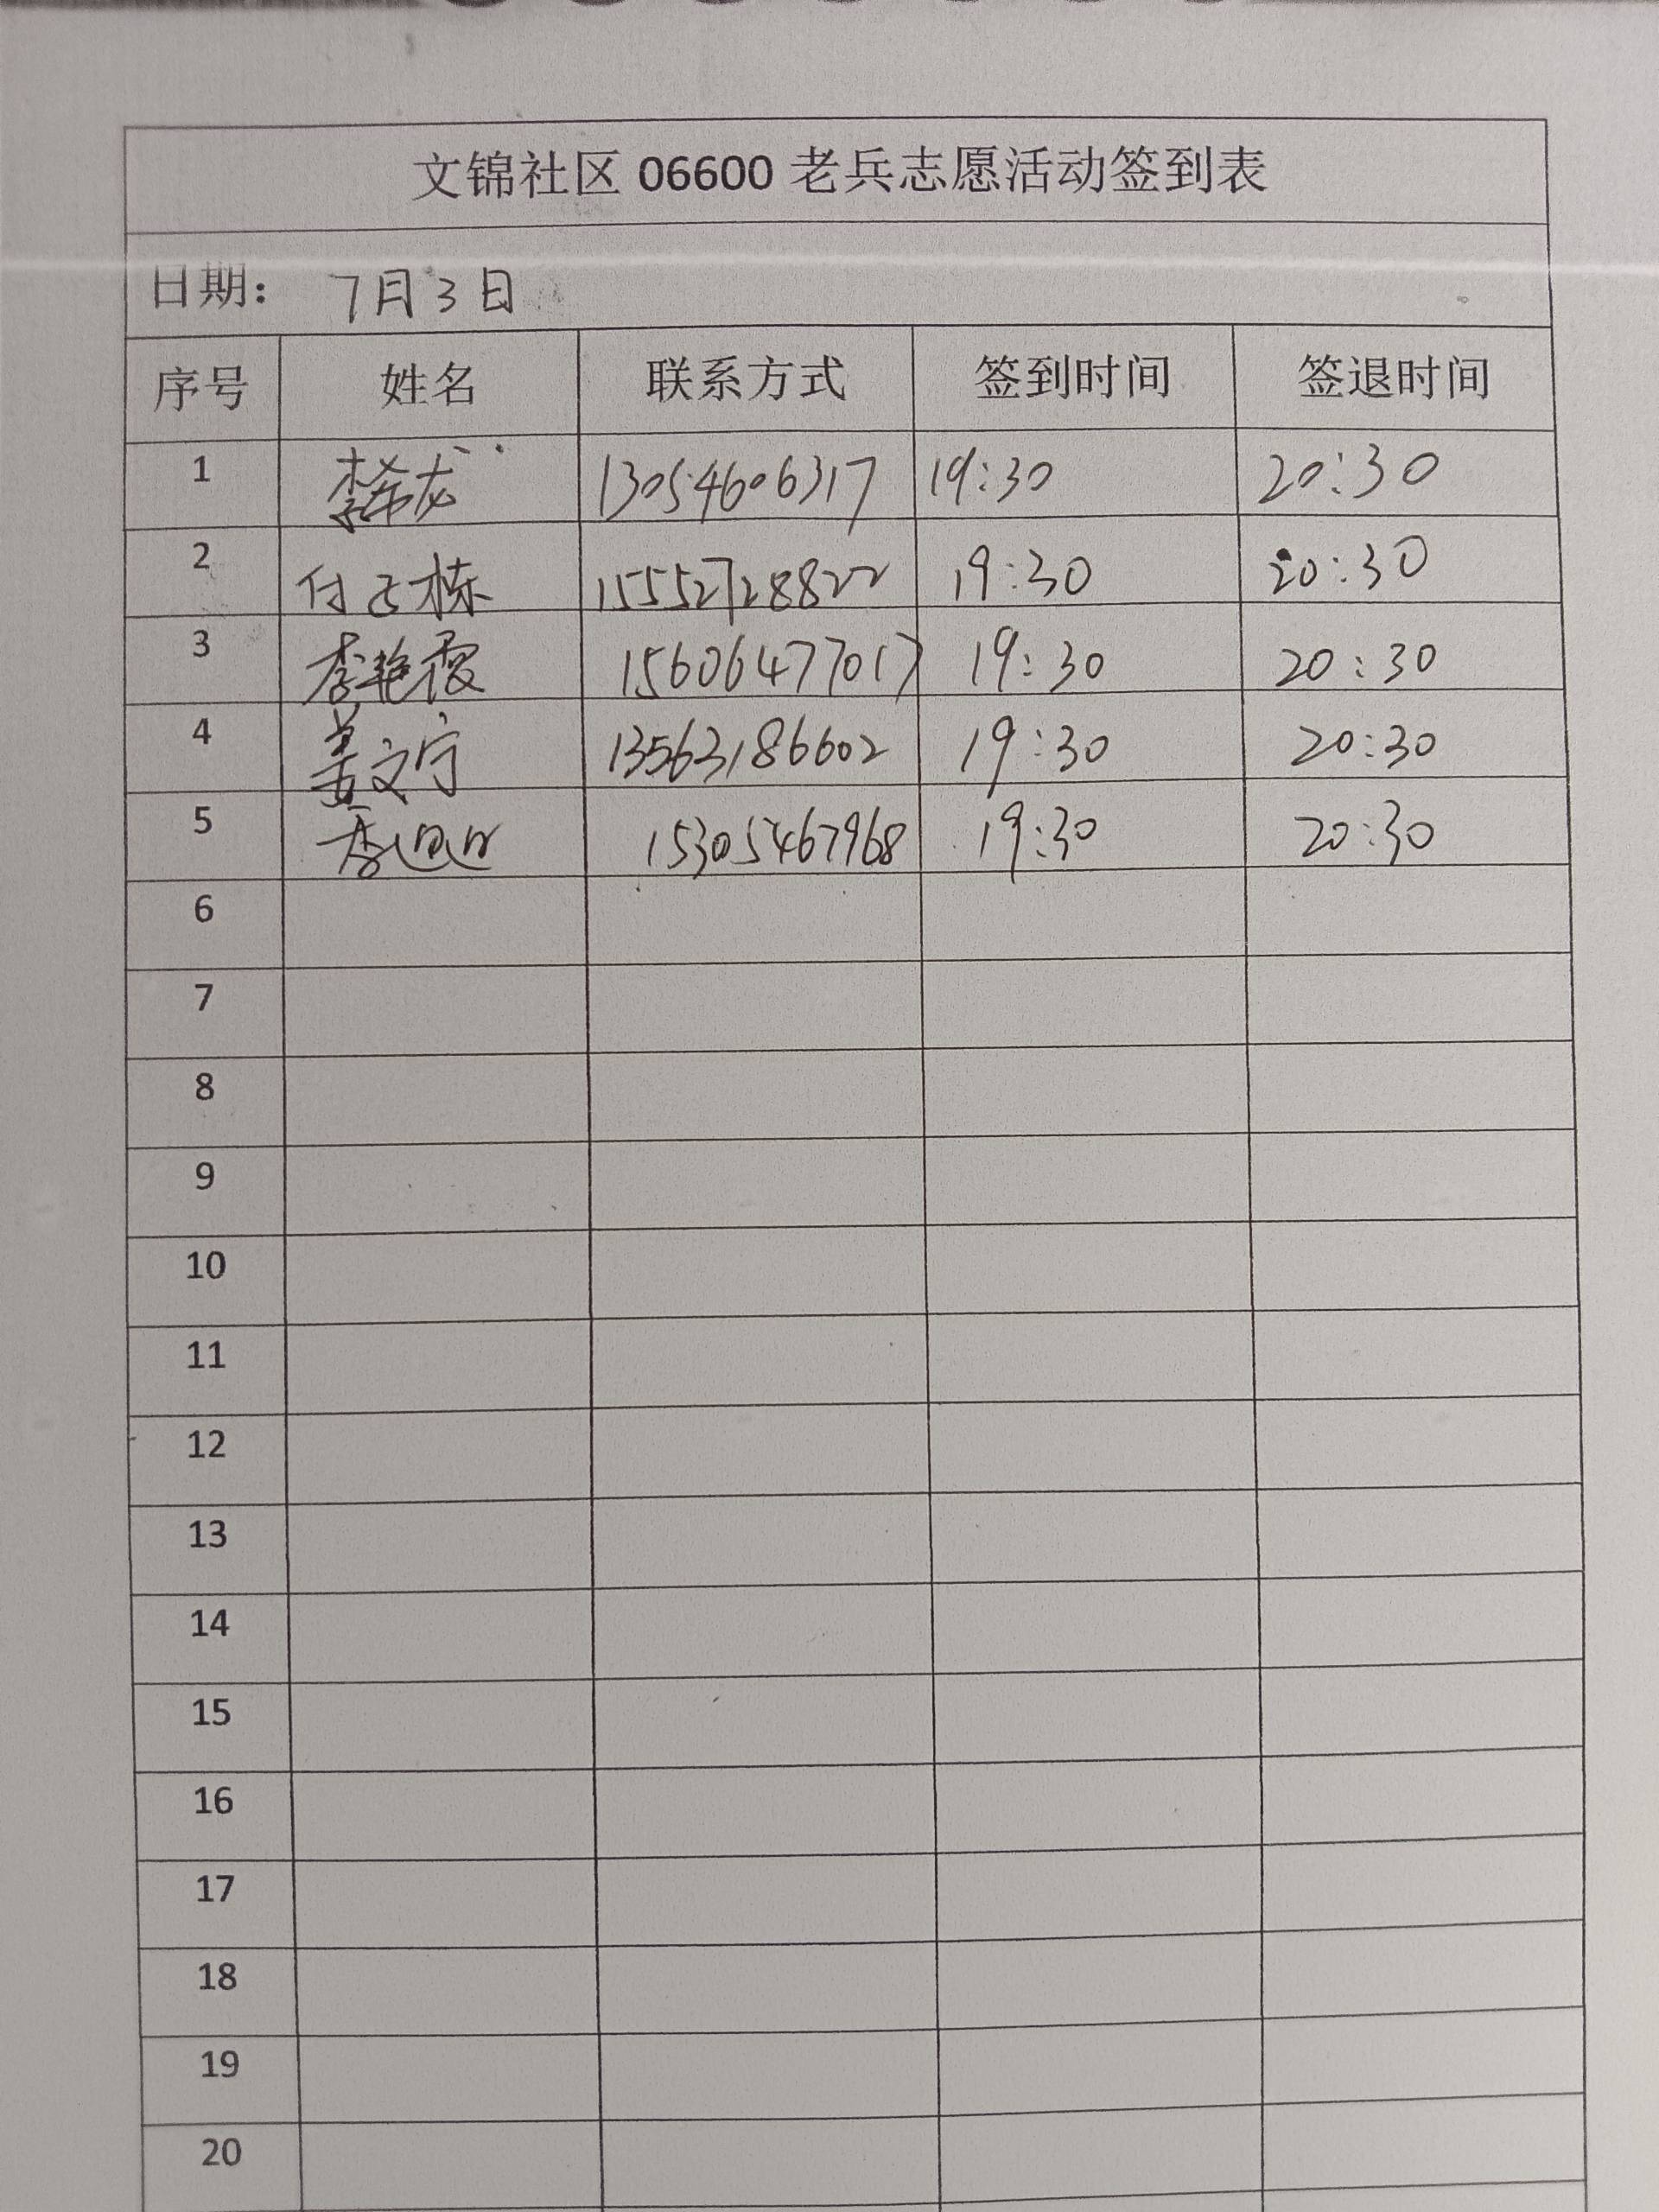 文锦社区 06600 老兵志愿活动签到表
日期： 7月3日
序号 姓名 联系方式 签到时间 签退时间
1 李希龙 13054606317 19:30 20:30
2 付 栋 15552728822 19:30 20:30
3 李艳霞 15606477017 19:30 20:30
4 姜文宁 13563186602 19:30 20:30
5 李 15305467968 19:30 20:30
6
7
8
9
10
11
12
13
14
15
16
17
18
19
20